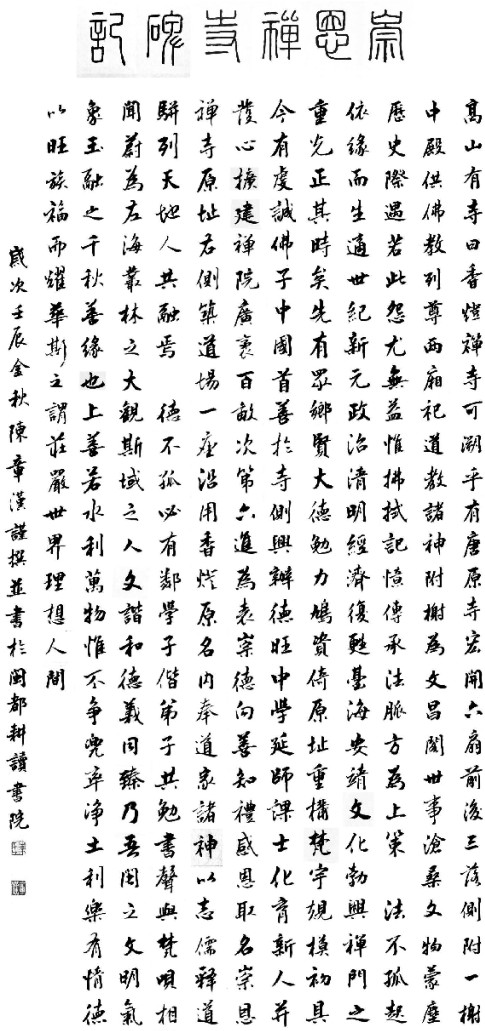 崇恩禪寺碑記
高山有寺曰香燈禪寺可溯乎有唐原寺宏開六扇前後三落側附一榭
中殿供佛教列尊兩廂祀道教諸神附榭為文昌閣世事滄桑文物蒙塵
歷史際遇若此怨尤無益惟拂拭記憶傳承法脈方為上策　法不孤起
依緣而生適世紀新元政治清明經濟復甦臺海安靖文化勃興禪門之
重光正其時矣先有眾鄉賢大德勉力鳩資倚原址重構梵宇規模初具
今有虔誠佛子中國首善於寺側興辦德旺中學延師課士化育新人并
發心擴建禪院廣袤百畝次第六進為表崇德向善知禮感恩取名崇恩
禪寺原址右側築道場一座沿用香燈原名內奉道家諸神以志儒釋道
駢列天地人共融焉　德不孤必有鄰學子偕弟子共勉書聲與梵唄相
聞蔚為左海叢林之大觀斯域之人文諧和德義同臻乃吾閩之文明氣
象玉融之千秋善緣也上善若水利萬物惟不爭兜率淨土利樂有情德
以旺族福而耀華斯之謂莊嚴世界理想人間
歲次壬辰金秋陳章漢謹撰並書於閩都耕讀書院